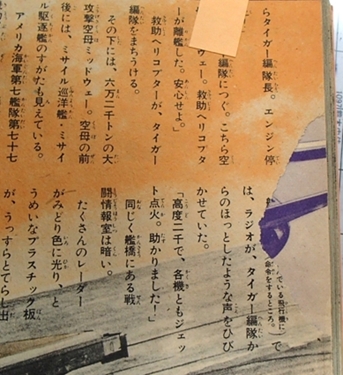 らタイガー編隊長。エンジン停
編隊につぐ。こちら空
ウェー。救助ヘリコプタ
ーが離艦した。安心せよ。」
救助ヘリコプターが、タイガー
編隊をまちうける。
その下には、六万二千トンの大
攻撃空母ミッドウェー。空母の前
後には、ミサイル巡洋艦、ミサイ
ル駆逐艦のすがたも見えている。
アメリカ海軍第七艦隊第七十七
でいる飛行機に
命令をするところ。）で
は、ラジオが、タイガー編隊か
らのほっとしたような声をひび
かせていた。
「高度二千で、各機ともジェッ
ト点火。助かりました！」
同じく艦橋にある戦
闘情報室は暗い。
たくさんのレーダー
がみどり色に光り、と
うめいなプラスチック板
が、うっすらとてらし出